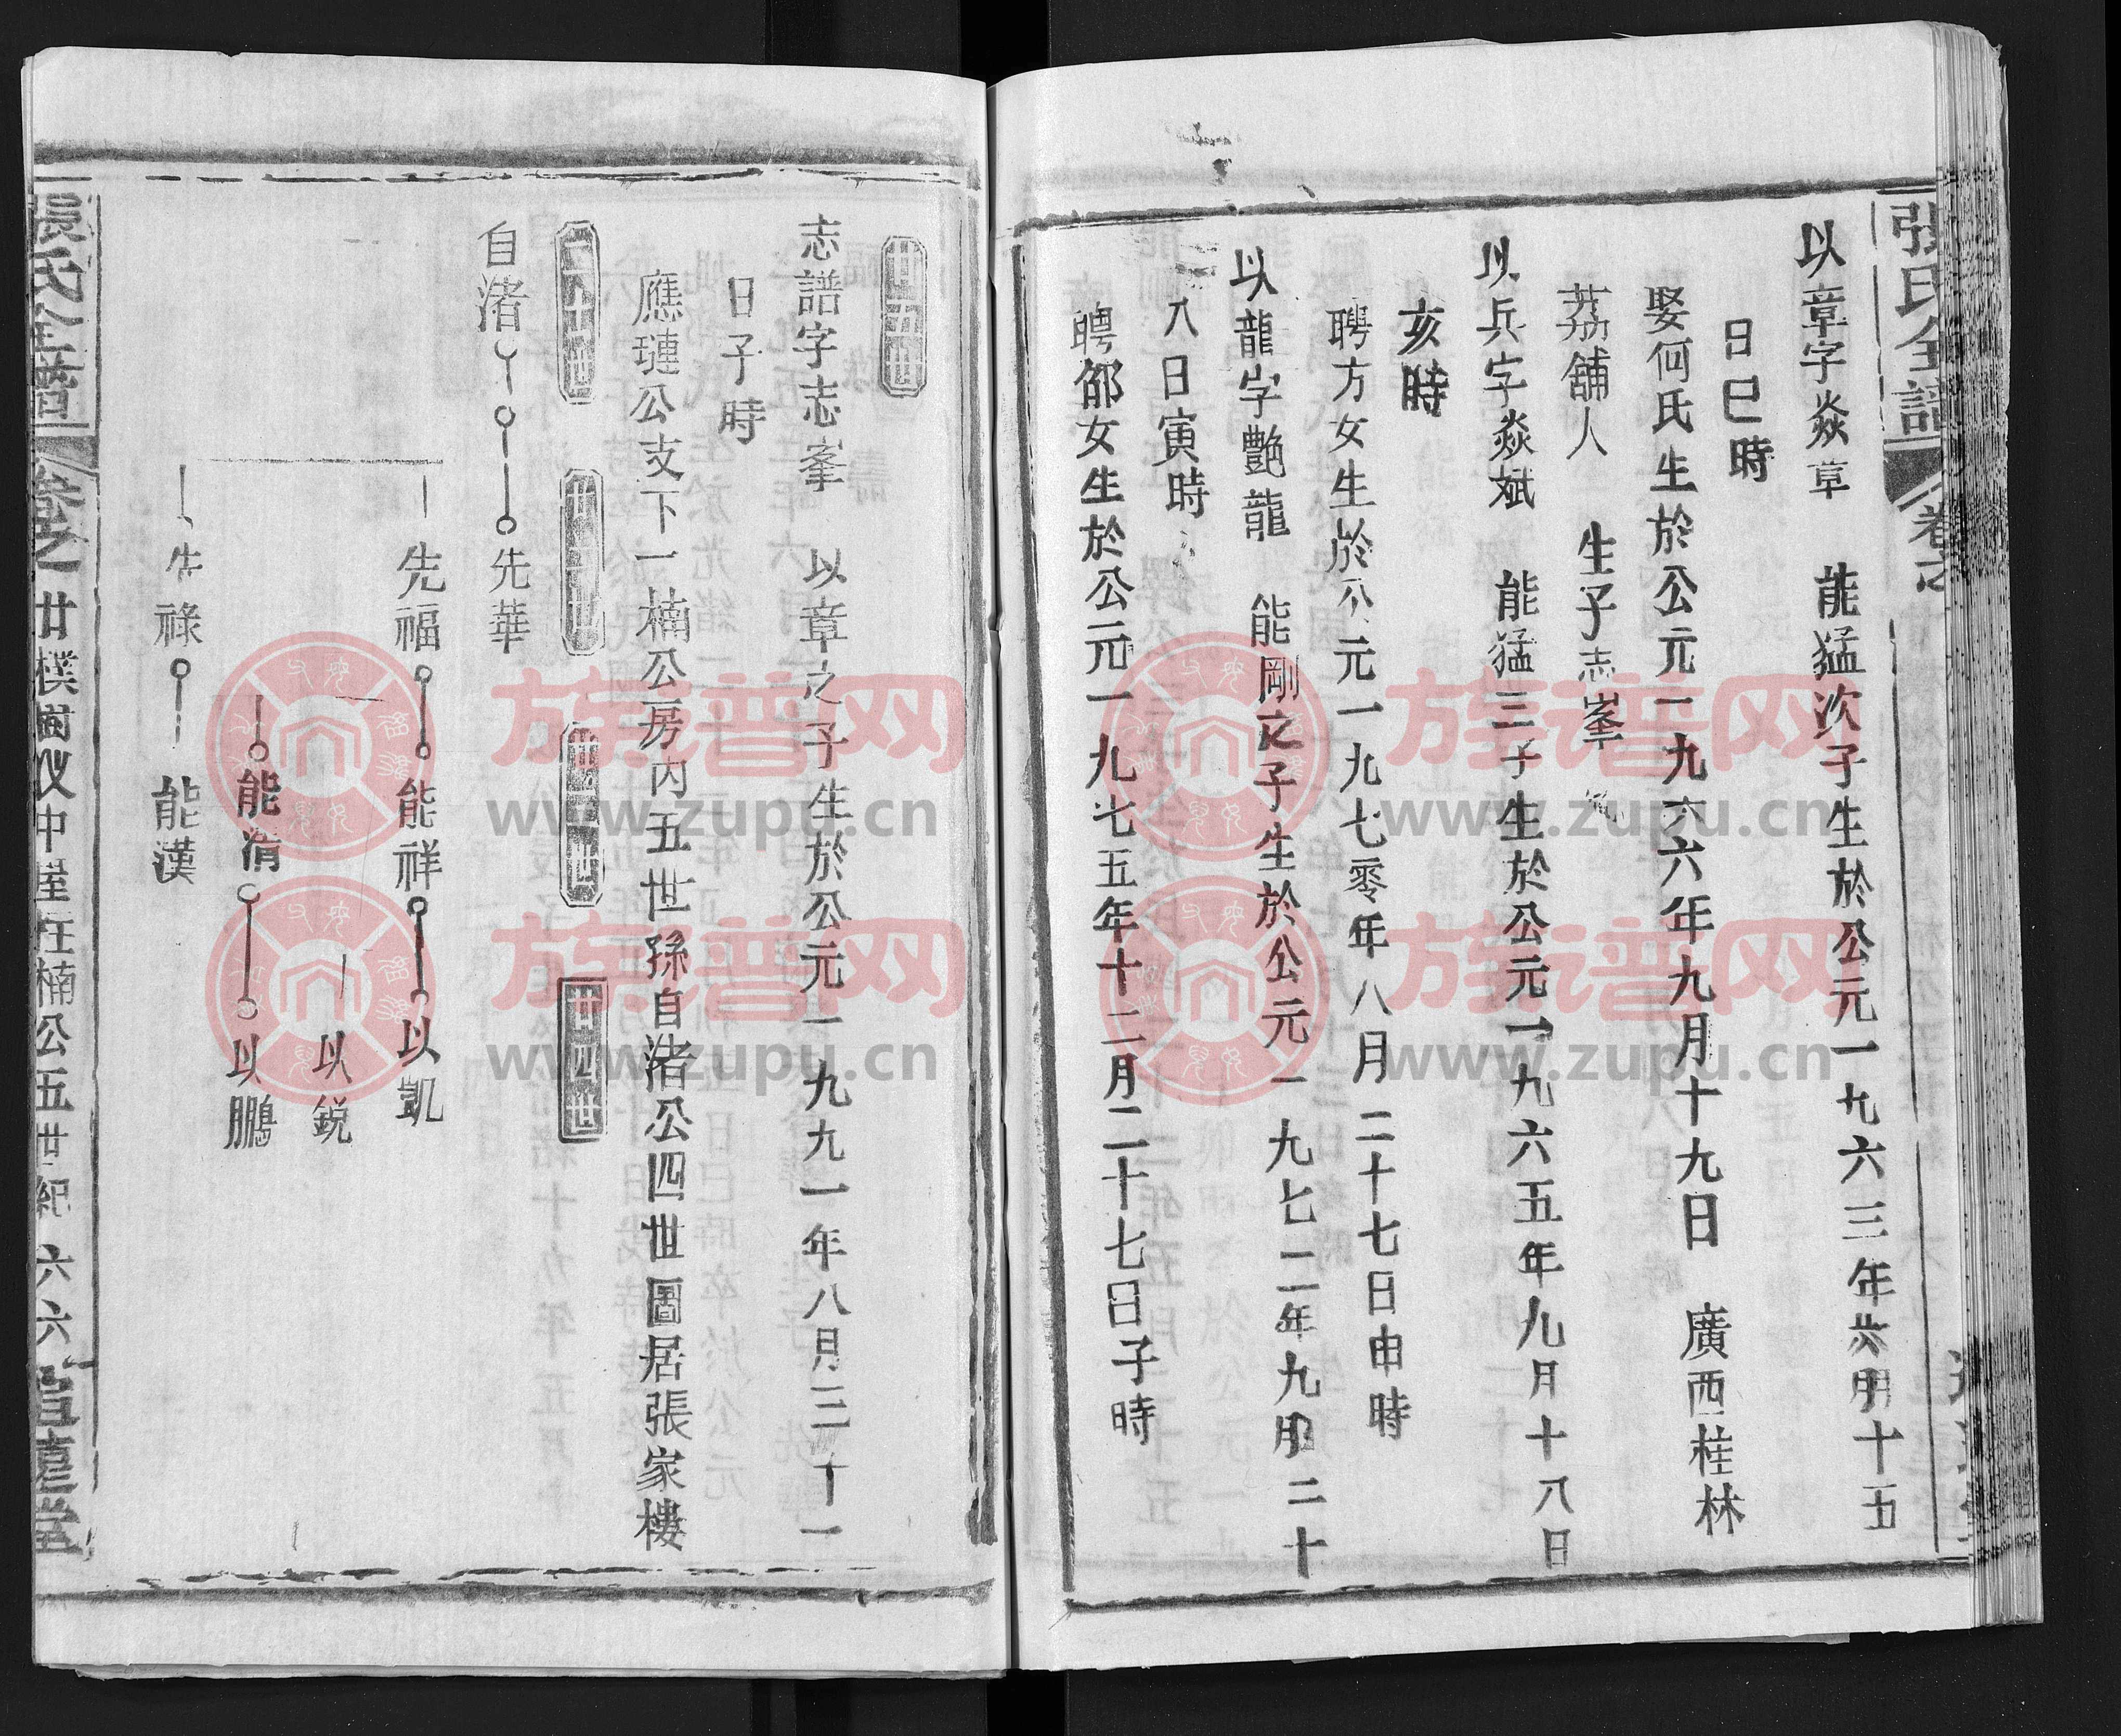 張氏全譜
卷之
以章字焱章 能猛次子生於公元一九六三年六月十五
日巳時
娶何氏生於公元一九六六年九月十九日 廣西桂林
荔舖人 生子志峯
以兵字焱斌 能猛三子生於公元一九六五年九月十八日
亥時
聘方女生於公元一九七零年八月二十七日申時
以龍字艷龍 能剛之子生於公元一九七二年九月二十
八日寅時
聘邰女生於公元一九七五年十二月二十七日子時
廿五世
志譜字志峯 以章之子生於公元一九九一年八月三十一
日子時
應璉公支下一楠公房內五世孫自渚公四世圖居張家樓
二十世 廿一世 廿三世 廿四世
自渚 先華
先福 能祥 以凱
以銳
能清 以鵬
先祿 能漢
張氏全譜 卷之廿樸樹仪中崖在楠公五世紀 六六 追遠堂
族谱网
www.zupu.cn
族谱网
www.zupu.cn
族谱网
www.zupu.cn
族谱网
www.zupu.cn